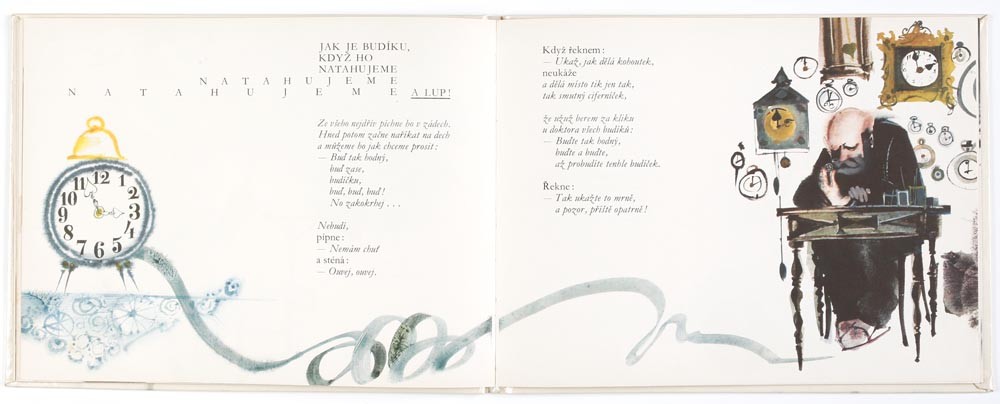 JAK JE BUDÍKU,
KDYŽ HO
NATAHUJEME
NATAHUJEME
NATAHUJEME A LUP!
Ze všeho nejdřív píchne ho v zádech.
Hned potom začne naříkat na dech
a můžeme ho jak chceme prosit:
— Buď tak hodný,
buď zase,
budíčku,
buď, buď, buď!
No zakokrhej . . .
Nebudí,
pípne:
— Nemám chuť
a sténá:
— Ouvej, ouvej.
12
1
2
3
4
5
6
7
8
9
10
11
Když řeknem:
— Ukaž, jak dělá kohoutek,
neukáže
a dělá místo tik jen tak,
tak smutný ciferníček,
že užuž berem za kliku
u doktora všech budíků:
— Buďte tak hodný,
buďte a buďte,
až probudíte tenhle budíček.
Řekne:
— Tak ukažte to mrně,
a pozor, příště opatrně!